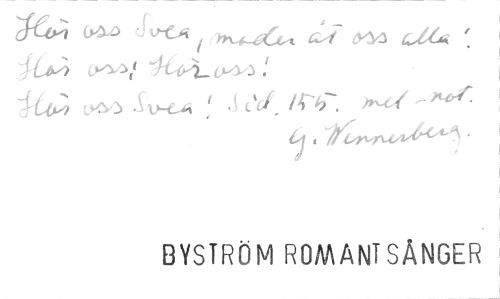 Hör oss Svea, moder åt oss alla!
Hör oss! Hör oss!
Hör oss Svea! Sid. 155. mel-not.
G. Wennerberg.
BYSTRÖM ROMANT SÅNGER